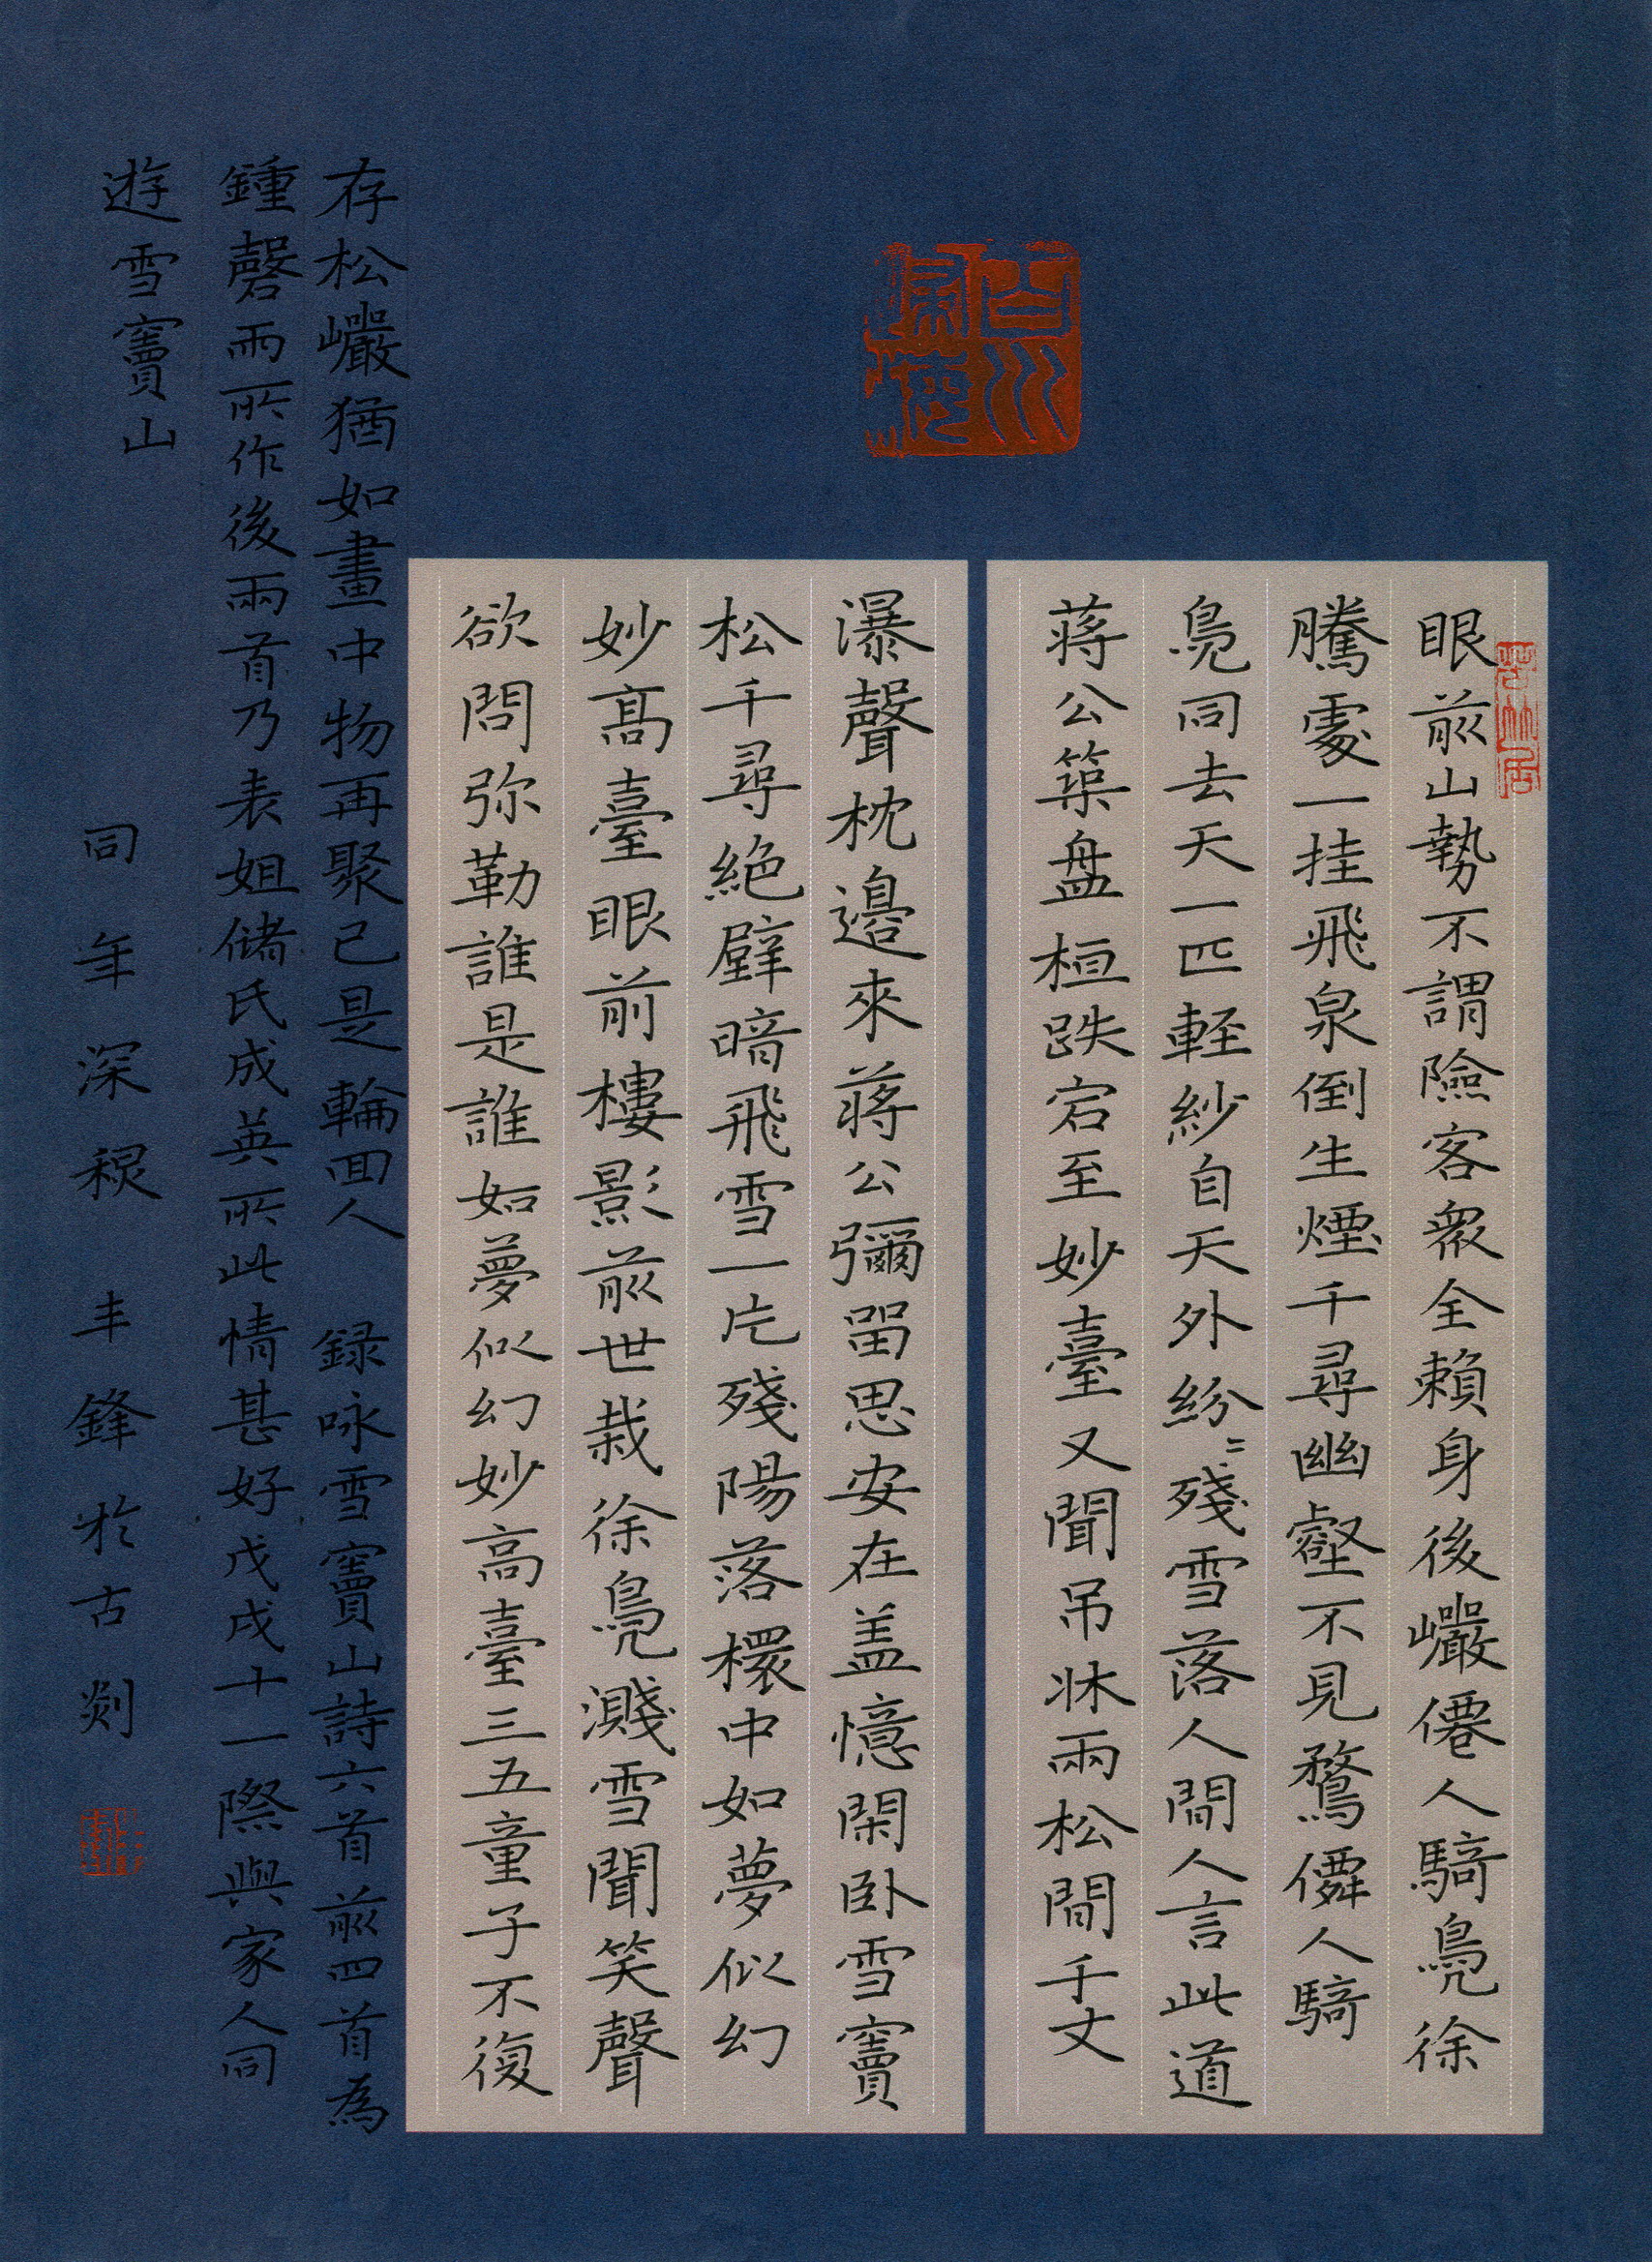 眼前山勢不謂險客眾全賴身後巖僊人騎鳧徐
騰處一挂飛泉倒生煙千尋幽壑不見鶩僊人騎
鳧同去天一匹輕紗自天外紛〻殘雪落人間人言此道
蔣公築盤桓跌宕至妙臺又聞吊床兩松間千丈
瀑聲枕邊來蔣公彌留思安在盖憶閑卧雪竇
松千尋絕壁暗飛雪一片殘陽落檈中如夢似幻
妙高臺眼前樓影前世栽徐鳧濺雪聞笑聲
欲問弥勒誰是誰如夢似幻妙高臺三五童子不復
存松巖猶如畫中物再聚已是輪回人 録咏雪竇山詩六首前四首為
鍾磬雨所作後兩首乃表姐儲氏成英所此情甚好戊戌十一際與家人同
遊雪竇山
同年深禄 丰鋒於古剡